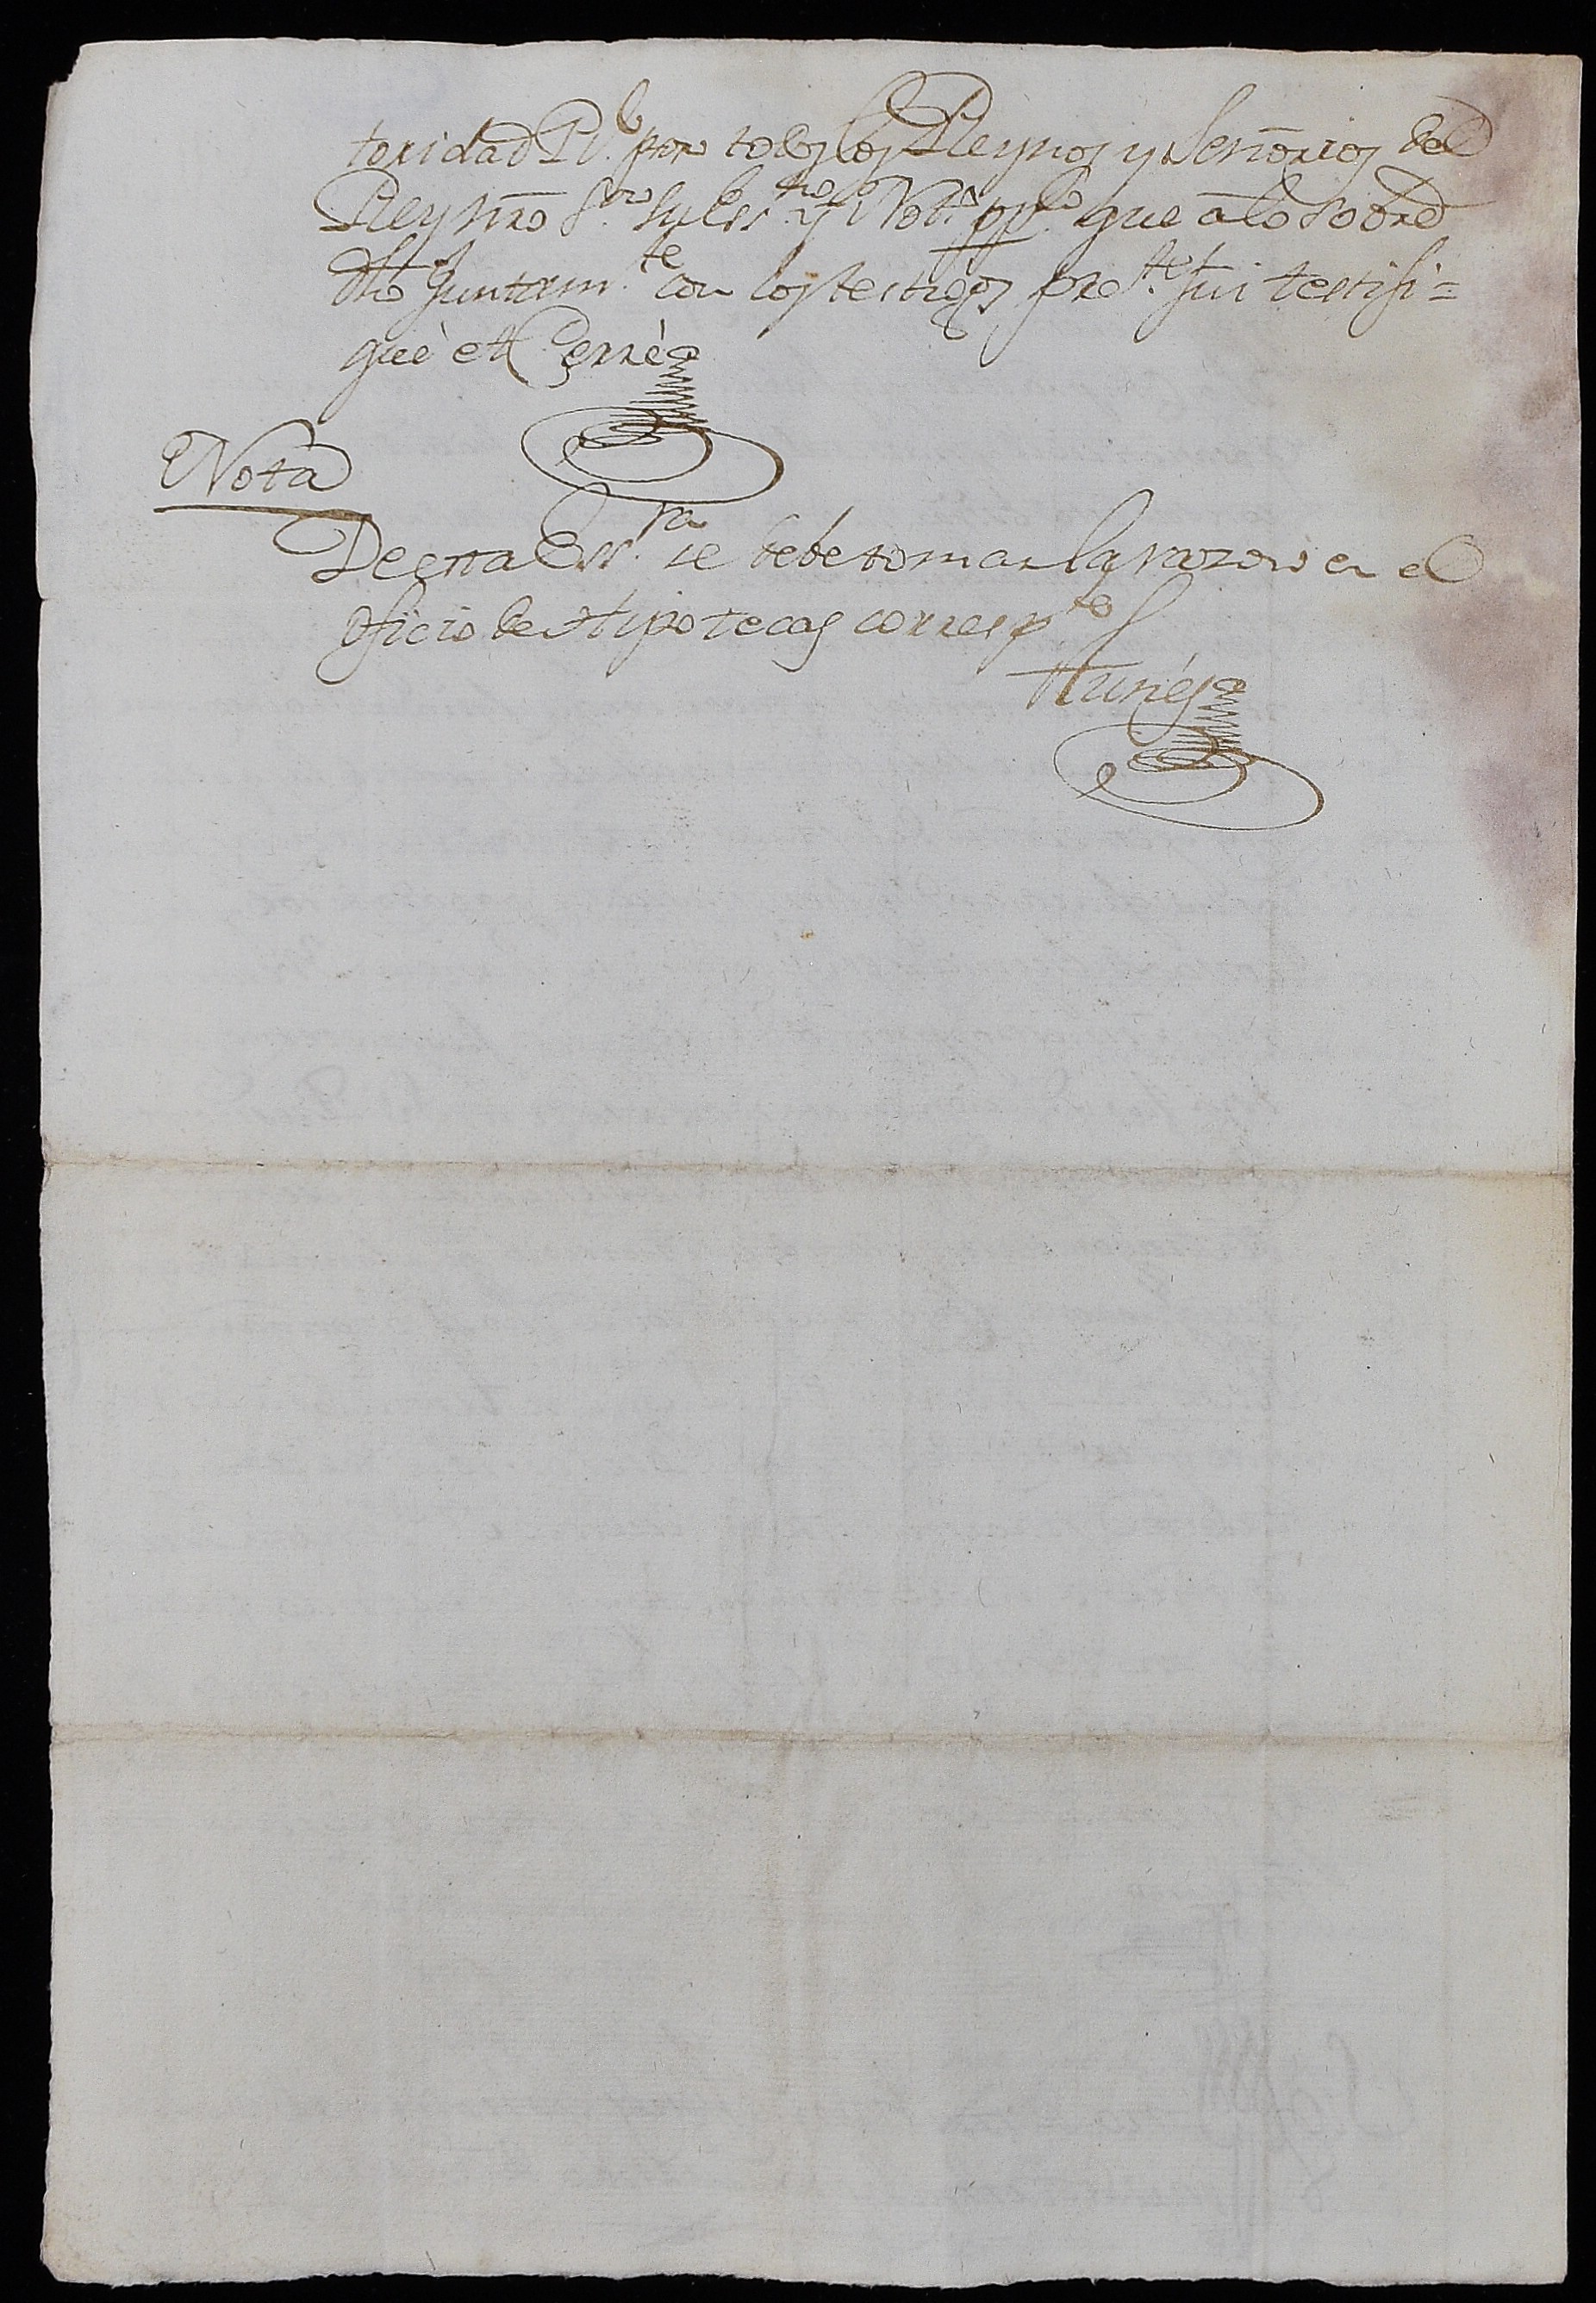 toridad Rl. por todos los Reynos y Señorios del
Rey nr̃o Sor. su ess.no y Noto. ppco. que â lo sobre
dho juntam.te con los testigos pre.te fui testifi=
què et Cerrè
Nota
De esta Ess.ra se debe tomar la razon en el
oficio de Hipotecas corresp.te
Nuñes